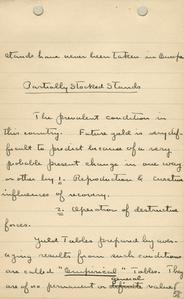 stands have never been taken in Europe
Partially Stocked Stands
The prevalent condition in
this country. Future yield is very dif-
ficult to predict because of a very
probable present change in one way
or other by 1. Reproduction & curative
influences of recovery.
2. Operation of destructive
forces.
Yield Tables prepared by aver-
aging results from such conditions
are called "Empirical" Tables. They
general
are of no permanent or definite value